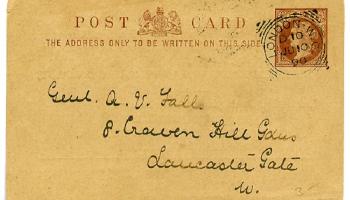 POST CARD
THE ADDRESS ONLY TO BE WRITTEN ON THIS SIDE
LONDON. W.C
JU 10
90
Genl. A. V. Falls
8. Craven Hill Gdns
Lancaster Gate
W.